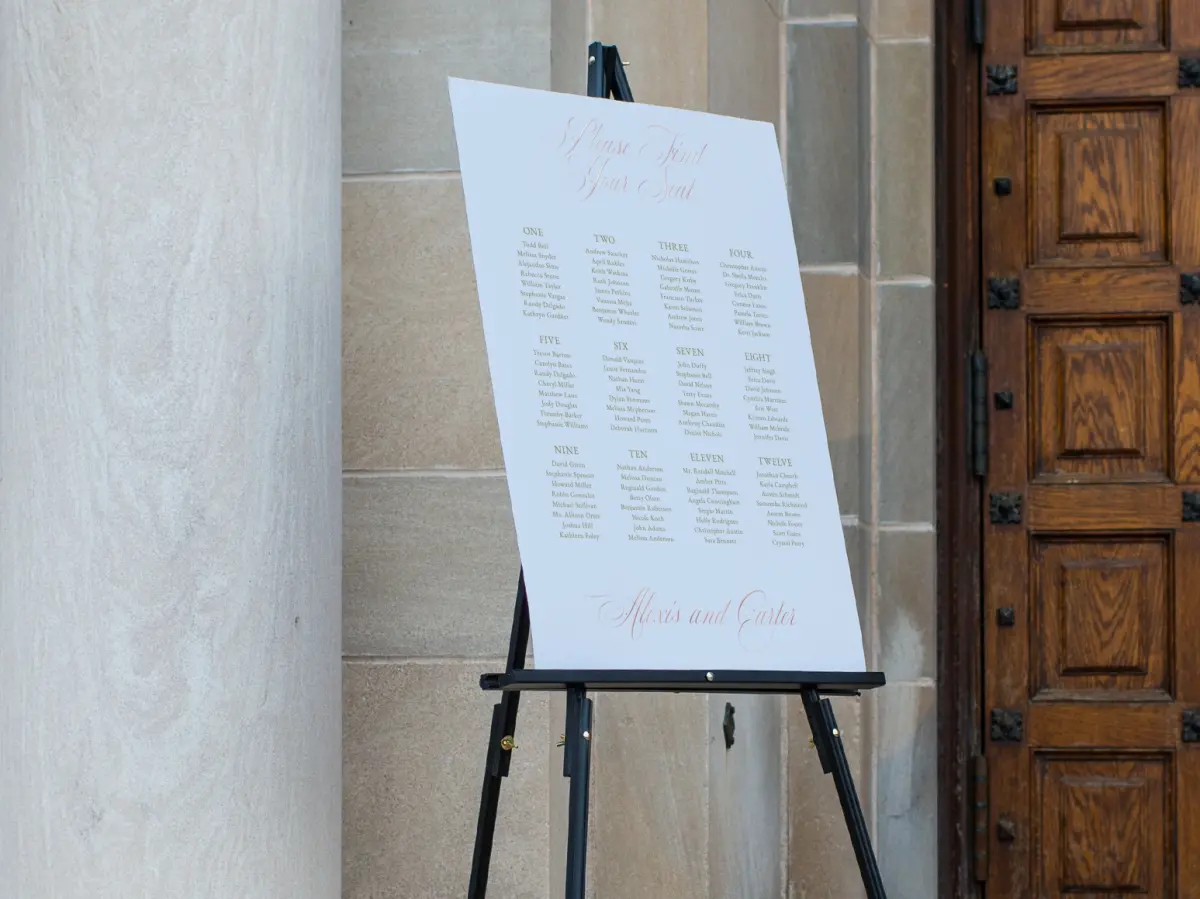 Please Find
Your Seat
ONE
Todd Bell
Melissa Snyder
Alejandro Sims
Rebecca Stone
William Taylor
Stephanie Vargas
Randy Delgado
Kathryn Gardner
TWO
Andrew Sanchez
April Robles
Keith Watkins
Ruth Johnson
James Perkins
Vanessa Miles
Benjamin Wheeler
Wendy Sanders
THREE
Nicholas
Michelle Graves
Gregory Kirby
Gabrielle Moore
Francisco Tucker
Karen
Andrew Jones
Natasha Scott
FOUR
Christopher
Dr. Sheila Morales
Gregory Franklin
Erica Davis
Pamela Torres
William Brown
Kerri Jackson
FIVE
Trevor Barton
Carolyn Bates
Randy Delgado
Cheryl Miller
Matthew Luna
Jody Douglas
Timothy Barker
Stephanie Williams
SIX
Donald Vasquez
Jason Fernandez
Nathan Hunt
Mia Yang
Dylan Peterson
Melissa Mcpherson
Howard Potts
Deborah Harrison
SEVEN
John Duffy
Stephanie Bell
David Nelson
Terry Evans
Shawn Mccarthy
Megan Harris
Anthony Chandler
Denise Nichols
EIGHT
Jeffrey Singh
Erica Davis
David Johnson
Cynthia Martinez
Eric West
Kristen Edwards
William Mcbride
Jennifer Davis
NINE
David Green
Stephanie Spencer
Howard Miller
Robin Gonzalez
Michael Sullivan
Ms. Allison Orr
Joshua Hill
Kathleen Foley
TEN
Nathan Anderson
Melissa Duncan
Reginald Gordon
Betty Oliver
Benjamin Robinson
Nicole Koch
John Adams
Melissa Anderson
ELEVEN
Mr. Randall Mitchell
Amber Pitts
Reginald Thompson
Angela Cunningham
Sergio Martin
Shelly Rodriguez
Christopher Austin
Sara Bennett
TWELVE
Jonathan Church
Karla Campbell
Austin Schmidt
Samantha Richmond
Austin Brown
Nichole Foster
Scott Evans
Crystal Perry
Alexis and Carter